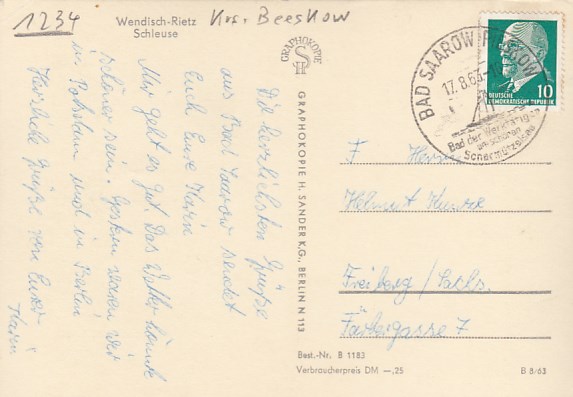 1234
Wendisch-Rietz Krs. Beeskow
Schleuse
Die herzlichsten Grüße
aus Bad Saarow sendet
Euch Eure Karin
Mir geht es gut. Das Wetter könnte
schöner sein. Gestern waren wir
in Potsdam und in Berlin
Herzliche Grüße von Eurer
Karin
GRAPHOKOPIE
SH
GRAPHOKOPIE H. SANDER K.G., BERLIN N 113
BAD SAAROW-PIESKOW
17.8.63
Bad der Werktätigen
am schönen
Scharmützelsee
10
DEUTSCHE
DEMOKRATISCHE REPUBLIK
F Herrn
Helmut
Freiberg/Sachs.
Färbergasse 7
Best.-Nr. B 1183
Verbraucherpreis DM —,25
B 8/63